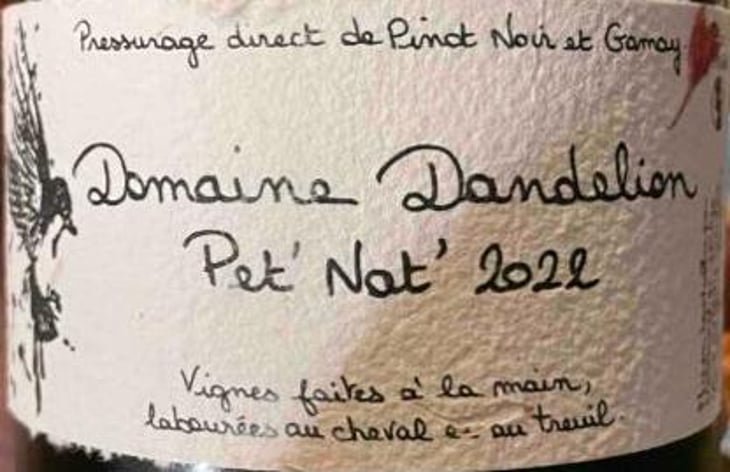 Pressurage direct de Pinot Noir et Gamay
Domaine Dandelion
Pet' Nat' 2022
Vignes faites à la main,
labourées au cheval et au treuil.